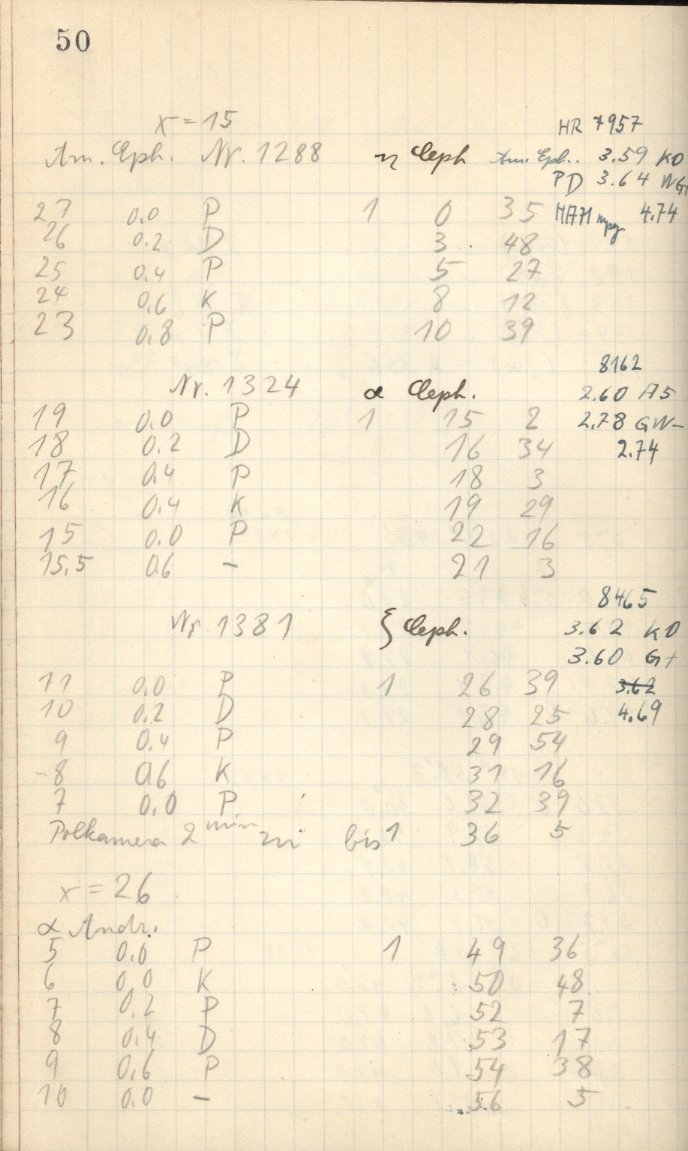 50
x = 15 HR 7957
Am. Eph. Nr. 1288 η Ceph Am. Eph.. 3.59 K0
PD 3.64 WG
27 0.0 P 1 0 35 4.74
26 0.2 D 3 48
25 0.4 P 5 27
24 0.6 K 8 12
23 0.8 P 10 39
8162
Nr. 1324 α Ceph. 2.60 A5
19 0.0 P 1 15 2 2.78 GW-
18 0.2 D 16 34 2.74
17 0.4 P 18 3
16 0.4 K 19 29
15 0.0 P 22 16
15.5 0.6 - 21 3
8465
Nr. 1381 ξ Ceph. 3.62 K0
3.60 G+
11 0.0 P 1 26 39 3.62
10 0.2 D 28 25 4.69
9 0.4 P 29 54
-8 0.6 K 31 16
7 0.0 P 32 39
Polkamera 2 min zu bis 1 36 5
x = 26
α Andr.
5 0.0 P 1 49 36
6 0.0 K 50 48
7 0.2 P 52 7
8 0.4 D 53 17
9 0.6 P 54 38
10 0.0 - 56 5